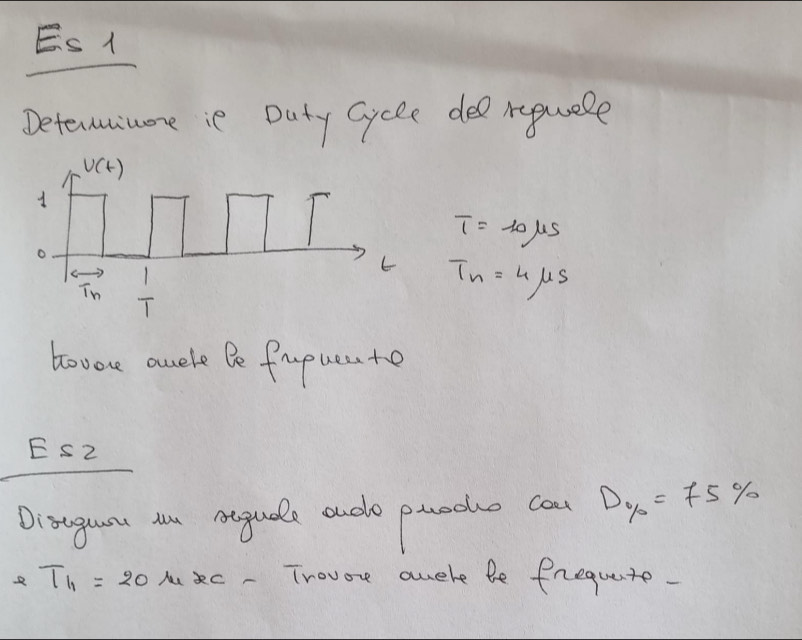 Es 1
Determinare il Duty Cycle del segnale
V(t)
1
0
t
Th
T
T = 10 μs
Th = 4 μs
trovare anche la frequenza
Es 2
Disegnare un segnale onda quadra con D% = 75 %
e Th = 20 μsec - Trovare anche la frequenza -